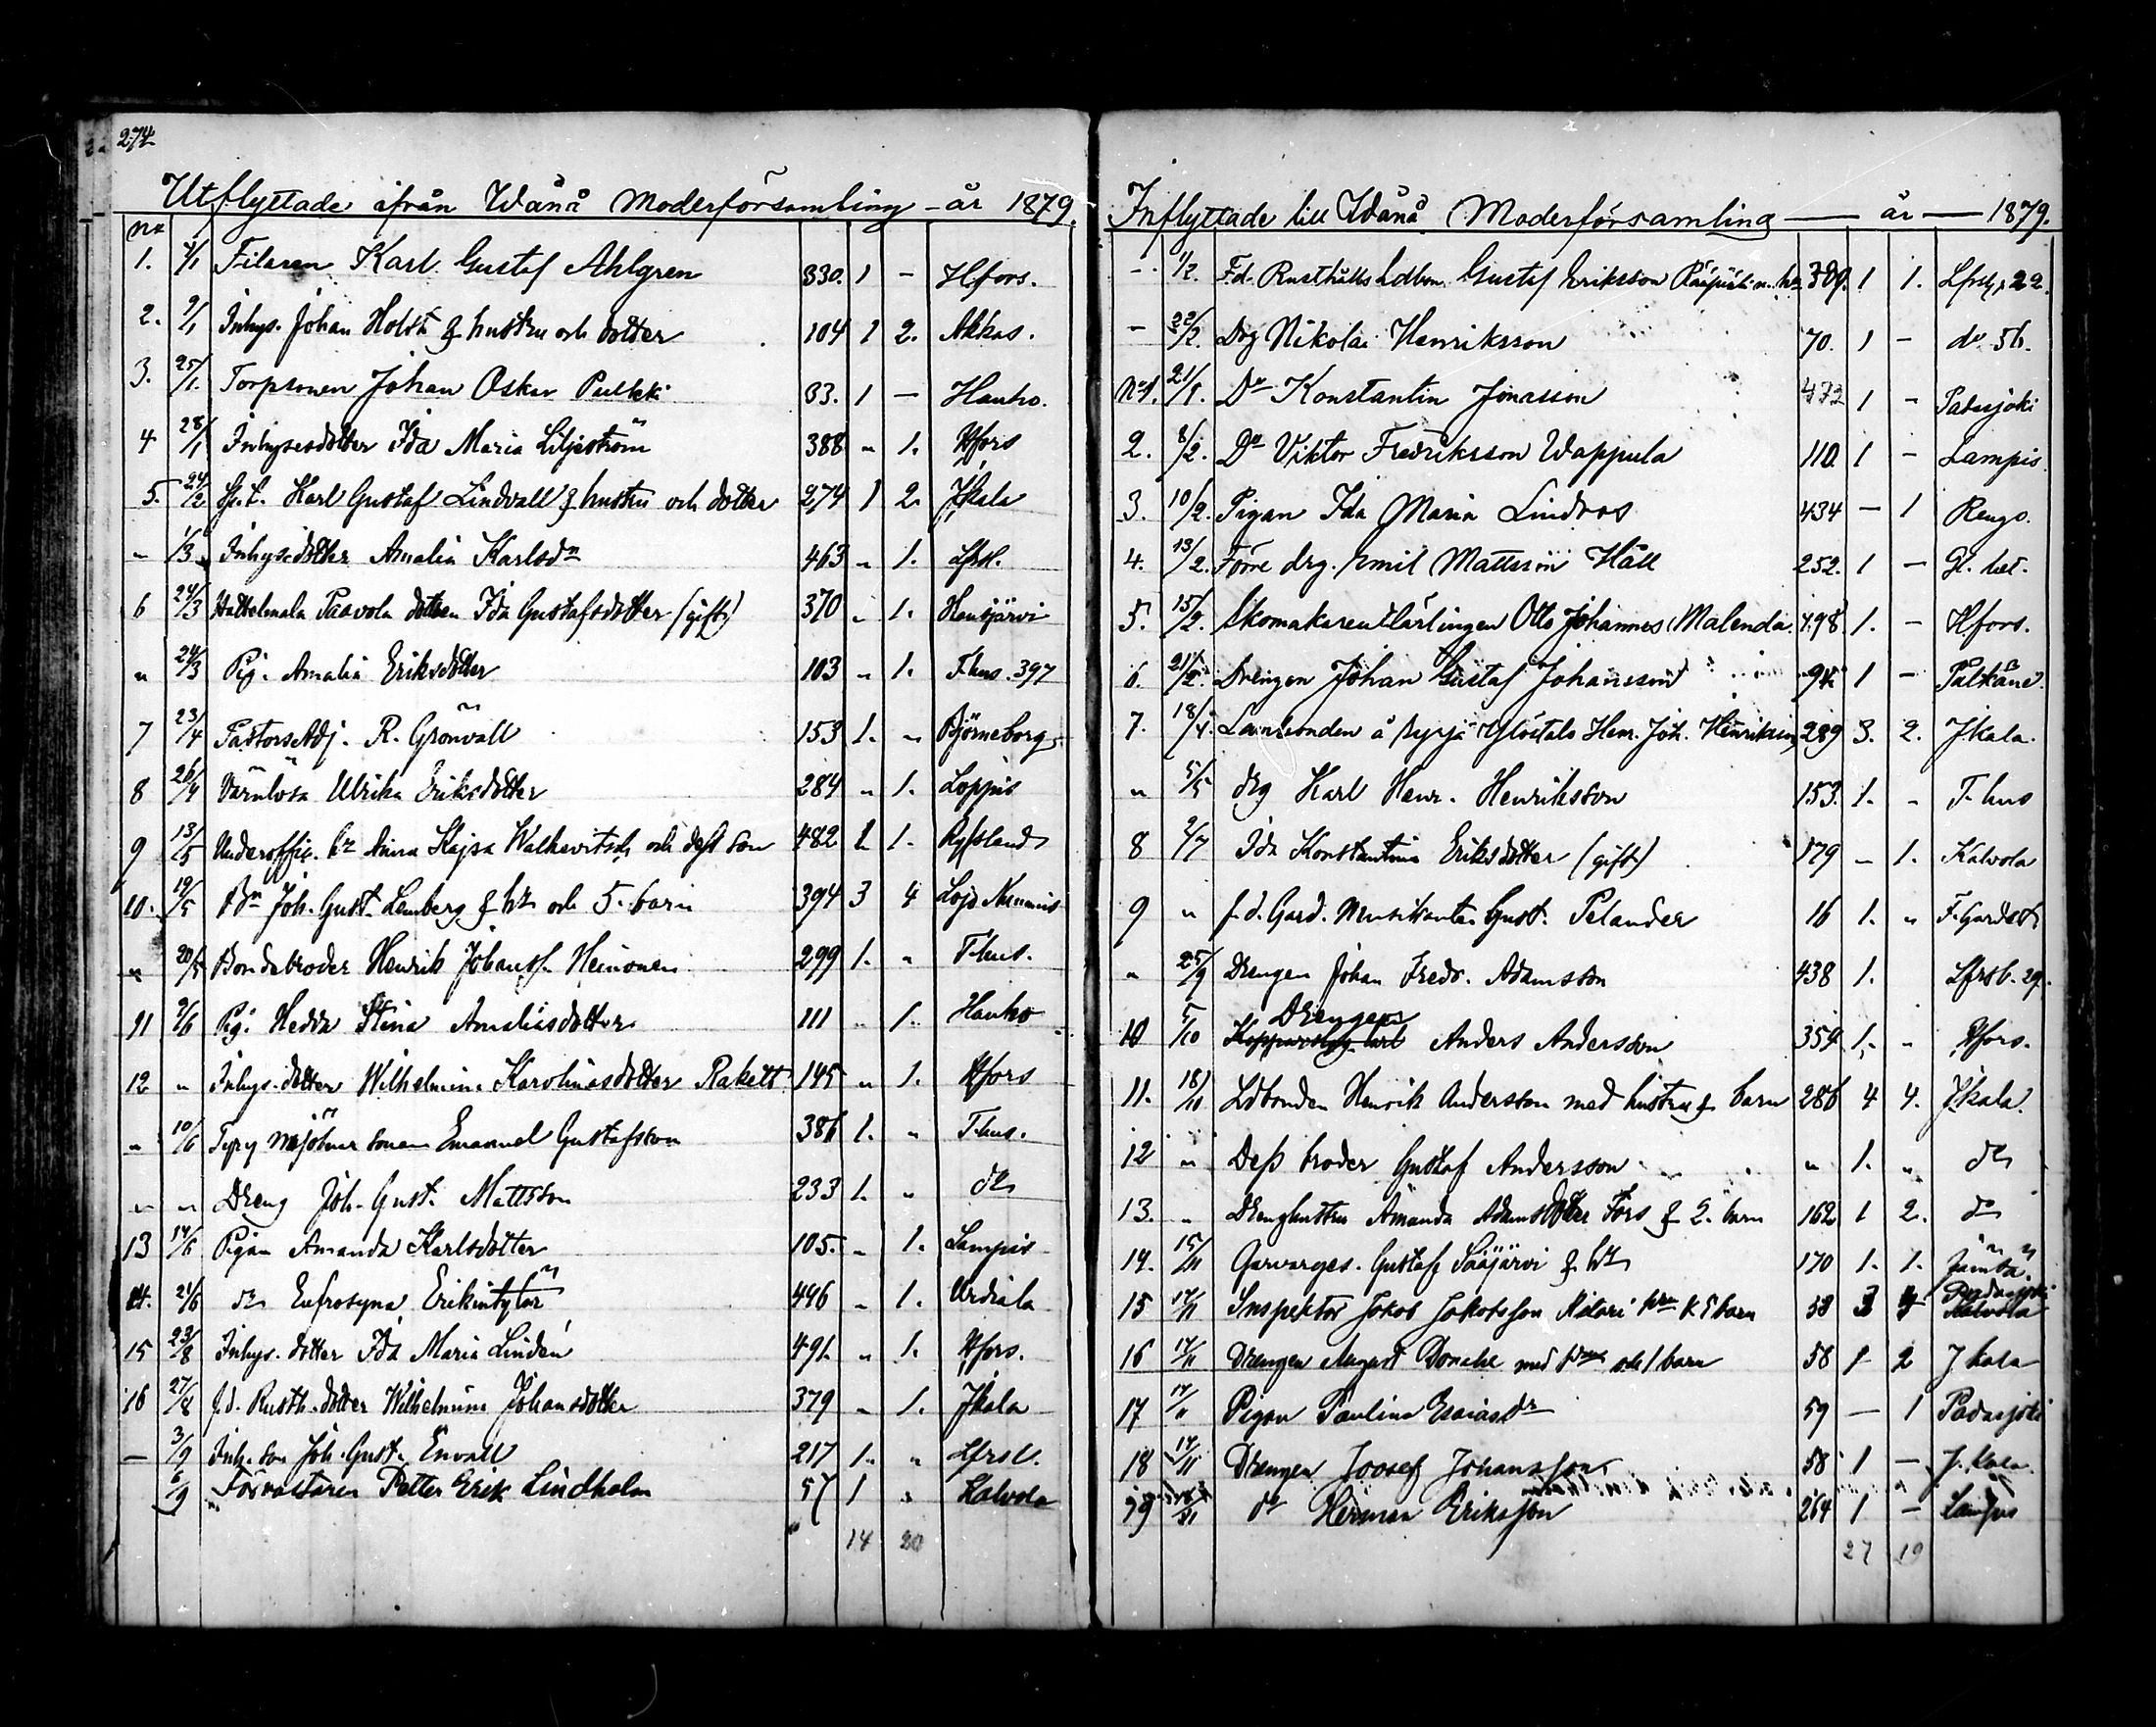 274
Utflyttade ifrån Wånå Moderförsamling - år 1879.
No
1. 7/1 Filaren Karl Gustaf Ahlgren 330. 1 - Hfors.
2. 9/1 Inhys. Johan Holst & hustru och dotter 104 1 2. Akkas.
3. 25/1. Torpsonen Johan Oskar Pulkki 33. 1 - Hauho.
4 28/1 Inhysesdotter Ida Maria Liljeström 388 " 1. Hfors
5. 24/2 Karl Gustaf Lindvall & hustru och dotter 274 1 2. Jkala
" 1/3 Inhys.dotter Amalia Karlsdr 463 " 1. Lfrsl.
6 24/3 Hattelmala Paavola dottern Ida Gustafsdotter (gift) 370 " 1. Hausjärvi
" 24/3 Pig. Amalia Eriksdotter 103 " 1. T-hus. 397
7 23/4 PastorsAdj. R. Grönvall 153 1. " Björneborg
8 26/4 Värnlösa Ulrika Eriksdotter 284 " 1. Loppis
9 13/5 Underoffic. hu Anna Kajsa Walkevitsch och dess son 482 1 1. Ryssland
10. 19/5 Joh. Gust. Lemberg & hu och 5. barn 394 3 4 Lojo Nummis
" 20/5 Bondebroder Henrik Johanss. Heinonen 299 1. " T-hus.
11 9/6 Pig. Hedda Stina Amaliasdotter 111 " 1. Hauho
12 " Inhys. dotter Wilhelmina Karolinasdotter Rakett 145 " 1. Hfors
" 10/6 Mjölnar sonen Emanuel Gustafsson 386 1. " T-hus.
" " Dreng Joh. Gust. Mattsson 233 1. " do
13 14/6 Pigan Amanda Karlsdotter 105. " 1. Lampis
14. 21/6 do Eufrosyna Erikintytär 446 " 1. Urdiala
15 23/8 Inhys. dotter Ida Maria Lindén 491. " 1. Hfors.
16 27/8 f.d. Rusth. dotter Wilhelmina Johansdotter 379 " 1. Jkala
- 3/9 Inh. son Joh. Gust. Envall 217 1. " Lfrsl.
" 6/9 Förvaltaren Petter Erik Lindholm 57 1 " Kalvola
14 20
Inflyttade till Wånå Moderförsamling — år — 1879.
- 1/2. F.d. Rusthålls Ldbon. Gustaf Eriksson 389. 1 1. 22.
- 22/2. Drg Nikolai Henriksson 70. 1 - do 56.
No 1. 21/1. Do Konstantin Jonasson 473 1 - Padasjoki
2. 8/2. Do Viktor Fredriksson Wappula 110. 1 - Lampis
3. 10/2. Pigan Ida Maria Lindros 434 - 1 Rengo.
4. 13/2. Förre drg. Emil Mattsson Häll 252. 1 -
5. 15/2. Skomakarentlärlingen Otto Johannes Malenda. 498 1. - Hfors.
6. 21/2. Drengen Johan Gustaf Johansson 94 1 - Pälkäne.
7. 18/4. Landbonden å Syrjä Ylöstalo Hem. Joh. Henriksson 289 3. 2. Jkala.
" 5/5 drg Karl Henr. Henriksson 153. 1. " T-hus
8 2/7 Ida Konstantina Eriksdotter (gift) 179 - 1. Kalvola
9 " f.d. Gard. Musikanten Gust. Pelander 16 1. " F. Gardest
" 25/9 Drengen Johan Fredr. Adamsson 438 1. Lfrsl. 29.
Drengen
10 5/10 Anders Andersson 359 1. " Hfors.
11. 18/10 Ldbonden Henrik Andersson med hustru & barn 286 4 4. Jkala.
12 " Dess broder Gustaf Andersson " 1. " do
13. " Drenghustru Amanda Adamsdotter Fors & 2. barn 162 1 2. do
14. 15/11 Garvarges. Gustaf Sääjärvi & hu 170 1. 1. Jämsä.
15 17/11 Inspektor Jakob Jakobsson 58 3 4 Padasjoki
Kalvola
16 17/11 Drengen August Donche med hru och 1 barn 58 1 2 Jkala
17 17/" Pigan Paulina Esaiasdr 59 - 1 Padasjoki
18 17/11 Drengen Joosef Johansson 58 1 - J.kala.
19 do Herman Eriksson 264 1 - Lampis
27 19